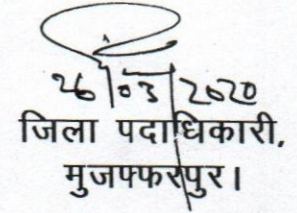 26/03/2020
जिला पदाधिकारी,
मुजफ्फरपुर।